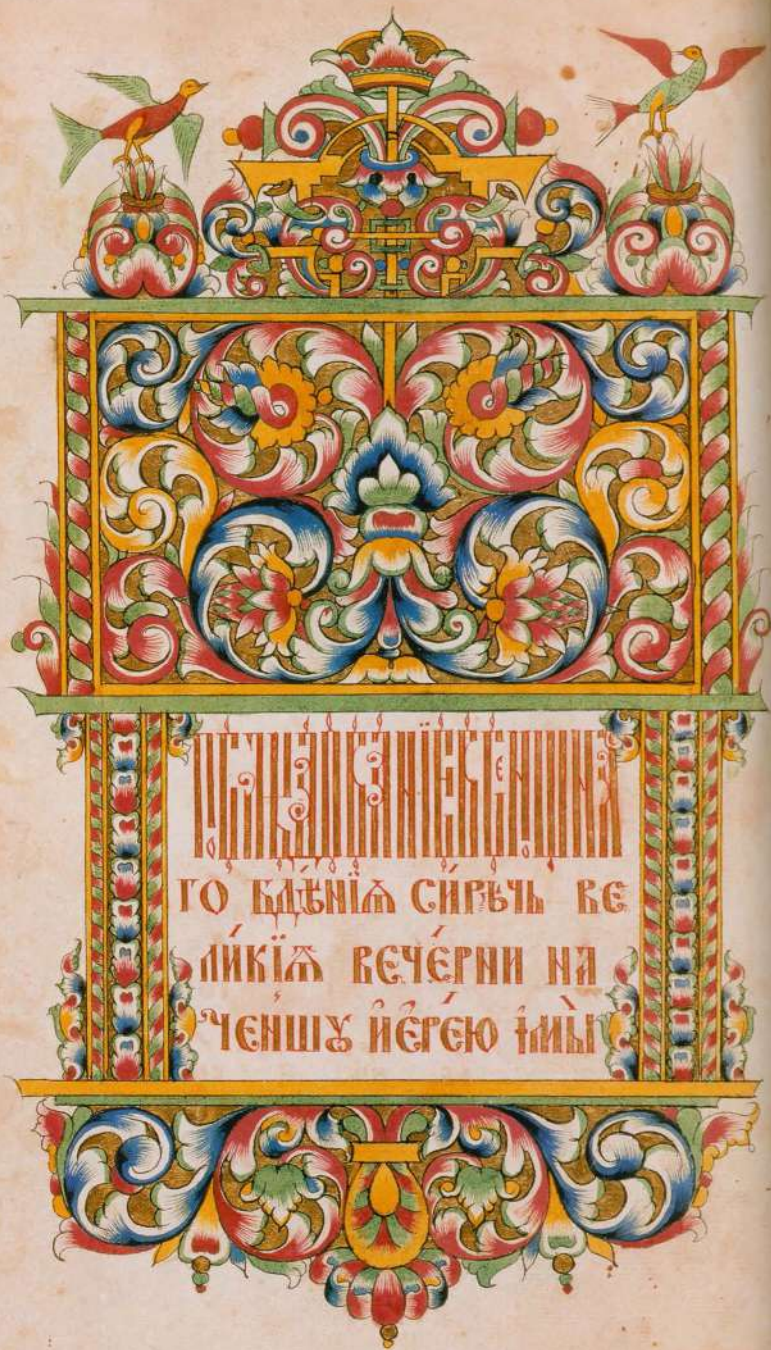 послѣдованїе всенощна
го бдѣ́нїѧ си́рѣчь ве
ли́кїѧ вече́рни на
че́ншꙋ і҆ере́ю і҆ мы̀